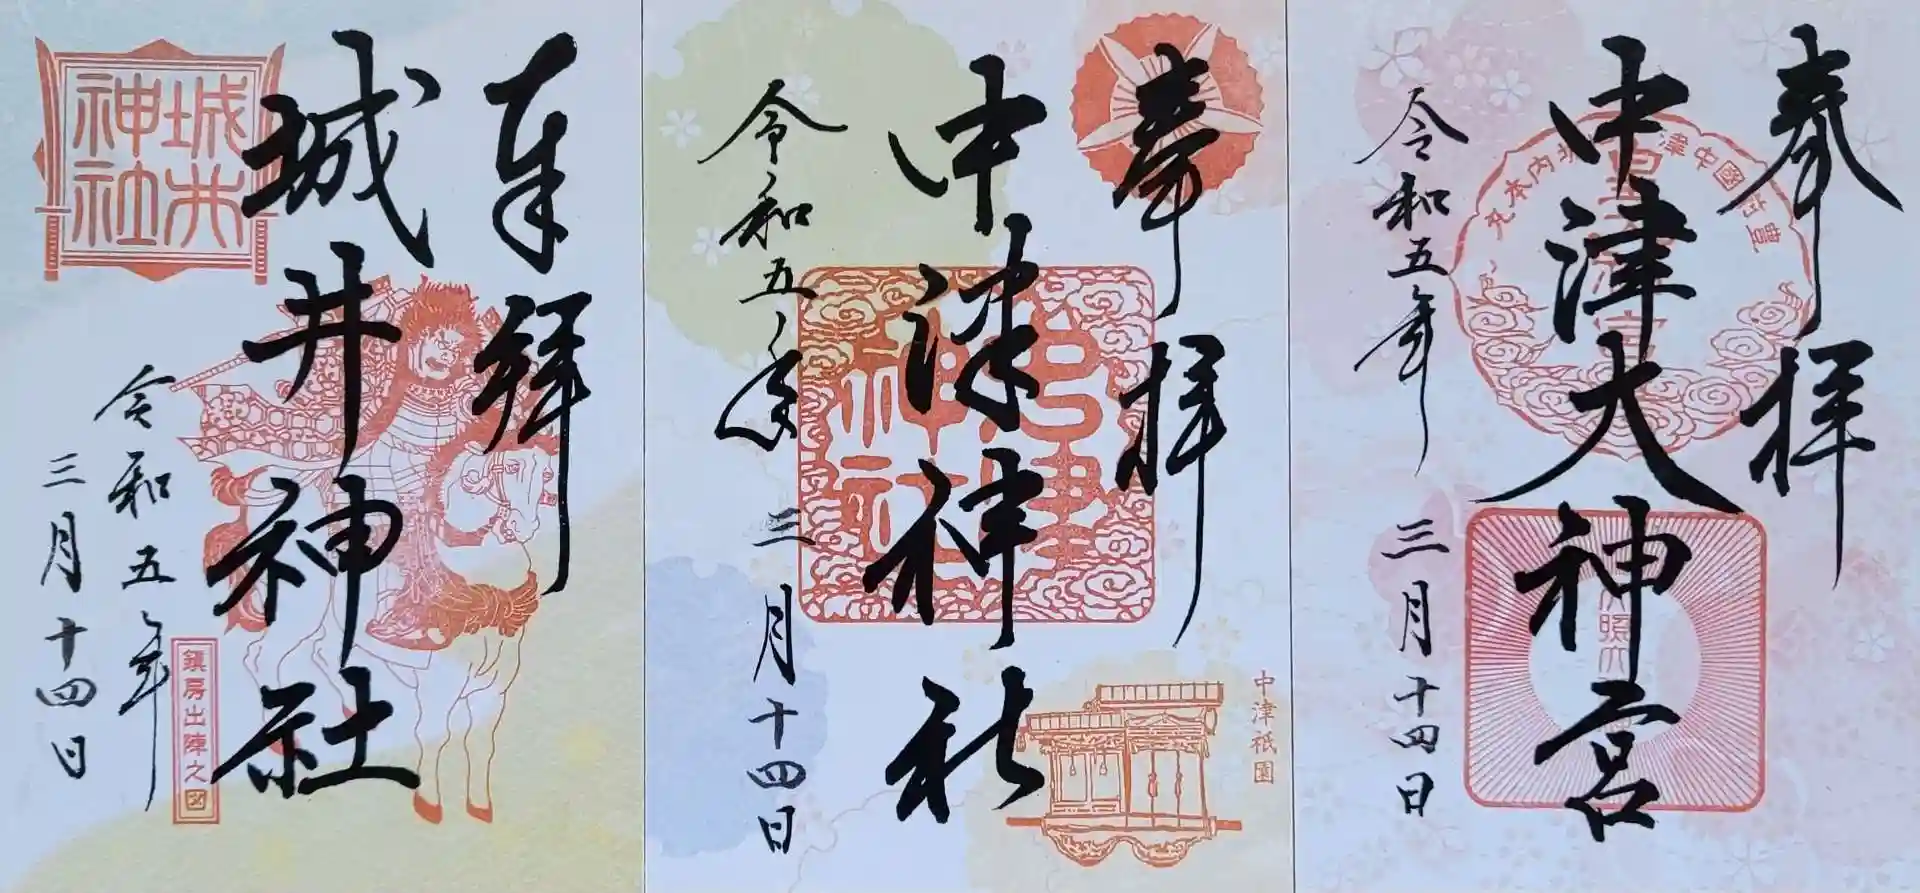 奉拝
城井神社
令和五年
三月十四日
城井
神社
鎮房出陣之図
奉拝
中津神社
令和五年
三月十四日
中津
神社
中津祇園
奉拝
中津大神宮
令和五年
三月十四日